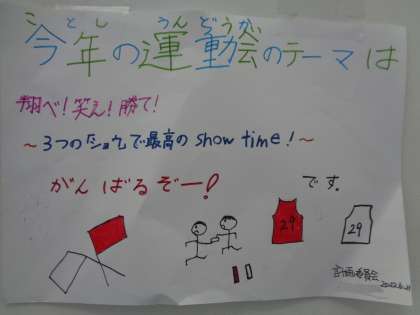 ことし うんどうかい
今年の運動会のテーマは
翔べ!笑え!勝て!
~3つの「ショウ」で最高のshow time!~
がんばるぞー!
です。
29
29
計画委員会